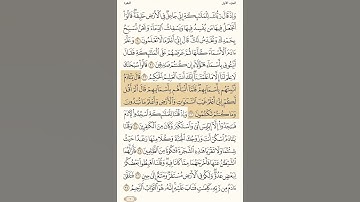 وَإِذْ قَالَ رَبُّكَ لِلْمَلَٰٓئِكَةِ إِنِّى جَاعِلٌ فِى ٱلْأَرْضِ خَلِيفَةً قَالُوٓا۟
أَتَجْعَلُ فِيهَا مَن يُفْسِدُ فِيهَا وَيَسْفِكُ ٱلدِّمَآءَ وَنَحْنُ نُسَبِّحُ
بِحَمْدِكَ وَنُقَدِّسُ لَكَ قَالَ إِنِّىٓ أَعْلَمُ مَا لَا تَعْلَمُونَ ٣٠ وَعَلَّمَ
ءَادَمَ ٱلْأَسْمَآءَ كُلَّهَا ثُمَّ عَرَضَهُمْ عَلَى ٱلْمَلَٰٓئِكَةِ فَقَالَ
أَنۢبِـُٔونِى بِأَسْمَآءِ هَٰٓؤُلَآءِ إِن كُنتُمْ صَٰدِقِينَ ٣١ قَالُوا۟
سُبْحَٰنَكَ لَا عِلْمَ لَنَآ إِلَّا مَا عَلَّمْتَنَآ إِنَّكَ أَنتَ ٱلْعَلِيمُ ٱلْحَكِيمُ ٣٢ قَالَ يَٰٓـَٔادَمُ
أَنۢبِئْهُم بِأَسْمَآئِهِمْ فَلَمَّآ أَنۢبَأَهُم بِأَسْمَآئِهِمْ قَالَ أَلَمْ أَقُل
لَّكُمْ إِنِّىٓ أَعْلَمُ غَيْبَ ٱلسَّمَٰوَٰتِ وَٱلْأَرْضِ وَأَعْلَمُ مَا تُبْدُونَ
وَمَا كُنتُمْ تَكْتُمُونَ ٣٣ وَإِذْ قُلْنَا لِلْمَلَٰٓئِكَةِ ٱسْجُدُوا۟ لِءَادَمَ
فَسَجَدُوٓا۟ إِلَّآ إِبْلِيسَ أَبَىٰ وَٱسْتَكْبَرَ وَكَانَ مِنَ ٱلْكَٰفِرِينَ ٣٤
وَقُلْنَا يَٰٓـَٔادَمُ ٱسْكُنْ أَنتَ وَزَوْجُكَ ٱلْجَنَّةَ وَكُلَا مِنْهَا رَغَدًا حَيْثُ
شِئْتُمَا وَلَا تَقْرَبَا هَٰذِهِ ٱلشَّجَرَةَ فَتَكُونَا مِنَ ٱلظَّٰلِمِينَ ٣٥
فَأَزَلَّهُمَا ٱلشَّيْطَٰنُ عَنْهَا فَأَخْرَجَهُمَا مِمَّا كَانَا فِيهِ وَقُلْنَا ٱهْبِطُوا۟ بَعْضُكُمْ
لِبَعْضٍ عَدُوٌّ وَلَكُمْ فِى ٱلْأَرْضِ مُسْتَقَرٌّ وَمَتَٰعٌ إِلَىٰ حِينٍ ٣٦ فَتَلَقَّىٰٓ
ءَادَمُ مِن رَّبِّهِۦ كَلِمَٰتٍ فَتَابَ عَلَيْهِ إِنَّهُۥ هُوَ ٱلتَّوَّابُ ٱلرَّحِيمُ ٣٧